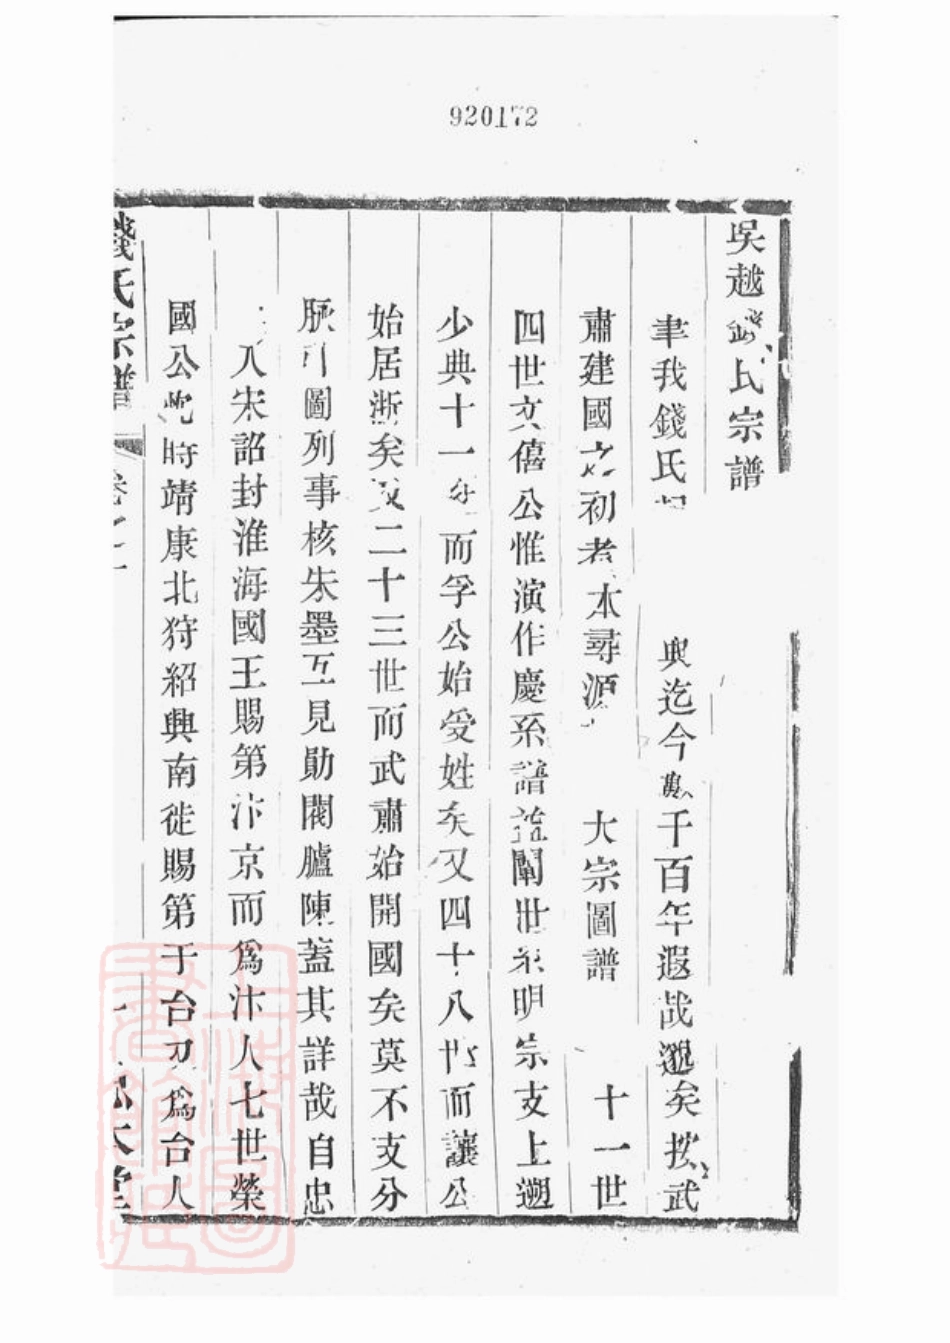 920172
吳越錢氏宗譜
聿我錢氏 興迄今數千百年遐哉邈矣按武
肅建國之初考本尋源 大宗圖譜 十一世
四世文僖公惟演作慶系譜 闡 明宗支上遡
少典十一 而孚公始受姓矣又四十八世而讓公
始居浙矣又二十三世而武肅始開國矣莫不支分
脈 圖列事核朱墨互見勛閥臚陳蓋其詳哉自忠
入宋詔封淮海國王賜第汴京而爲汴人七世榮
國公 時靖康北狩紹興南徙賜第于台 爲台人
錢氏宗譜 卷之一 一 大堂
上海圖書館藏